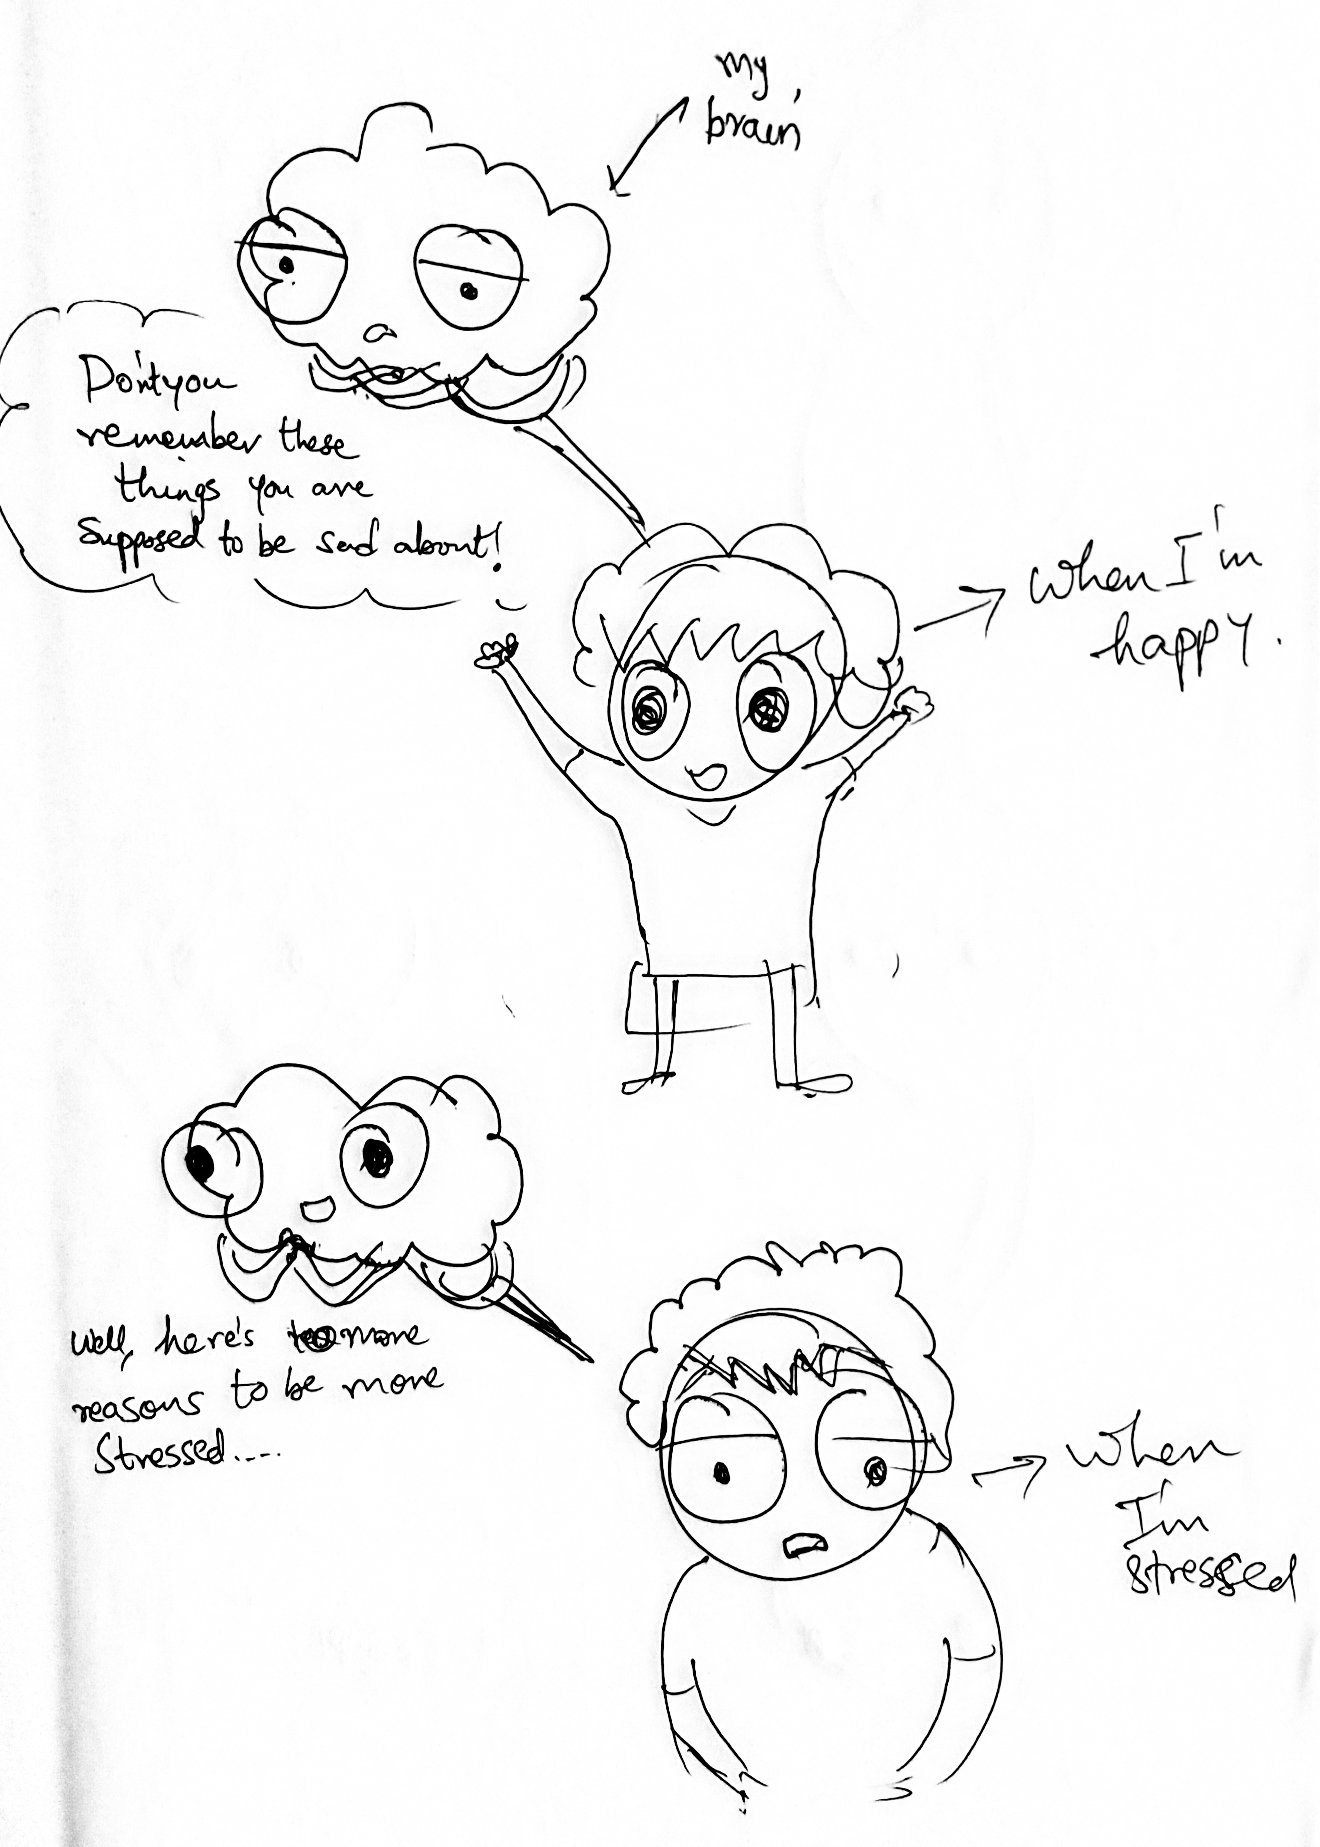 my
brain
Don't you
remember these
things you are
supposed to be sad about!
when I'm
happy.
Well, here's more
reasons to be more
stressed....
when
I'm
stressed